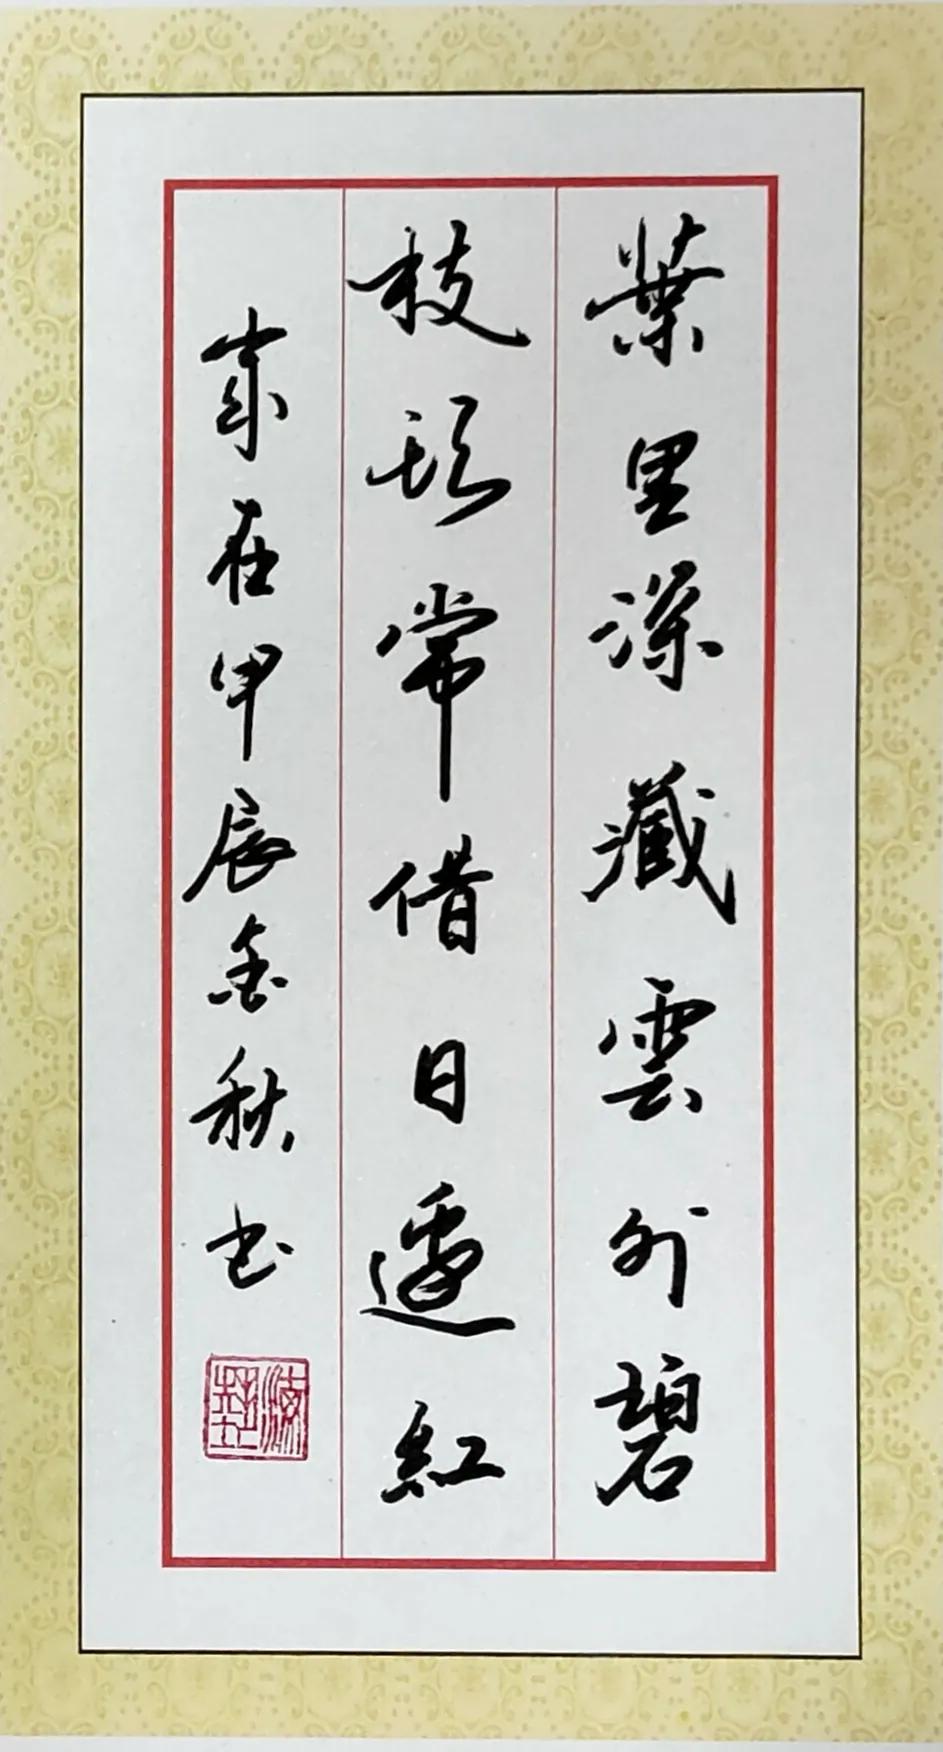 葉里深藏雲外碧
枝頭常借日邊紅
歲在甲辰金秋書